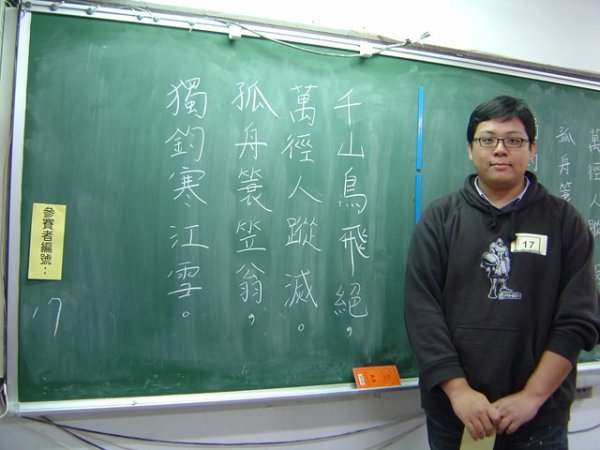 千山鳥飛絕,
萬徑人蹤滅。
孤舟簑笠翁,
獨釣寒江雪。
參賽者編號:
17
17
萬徑人蹤
孤舟簑